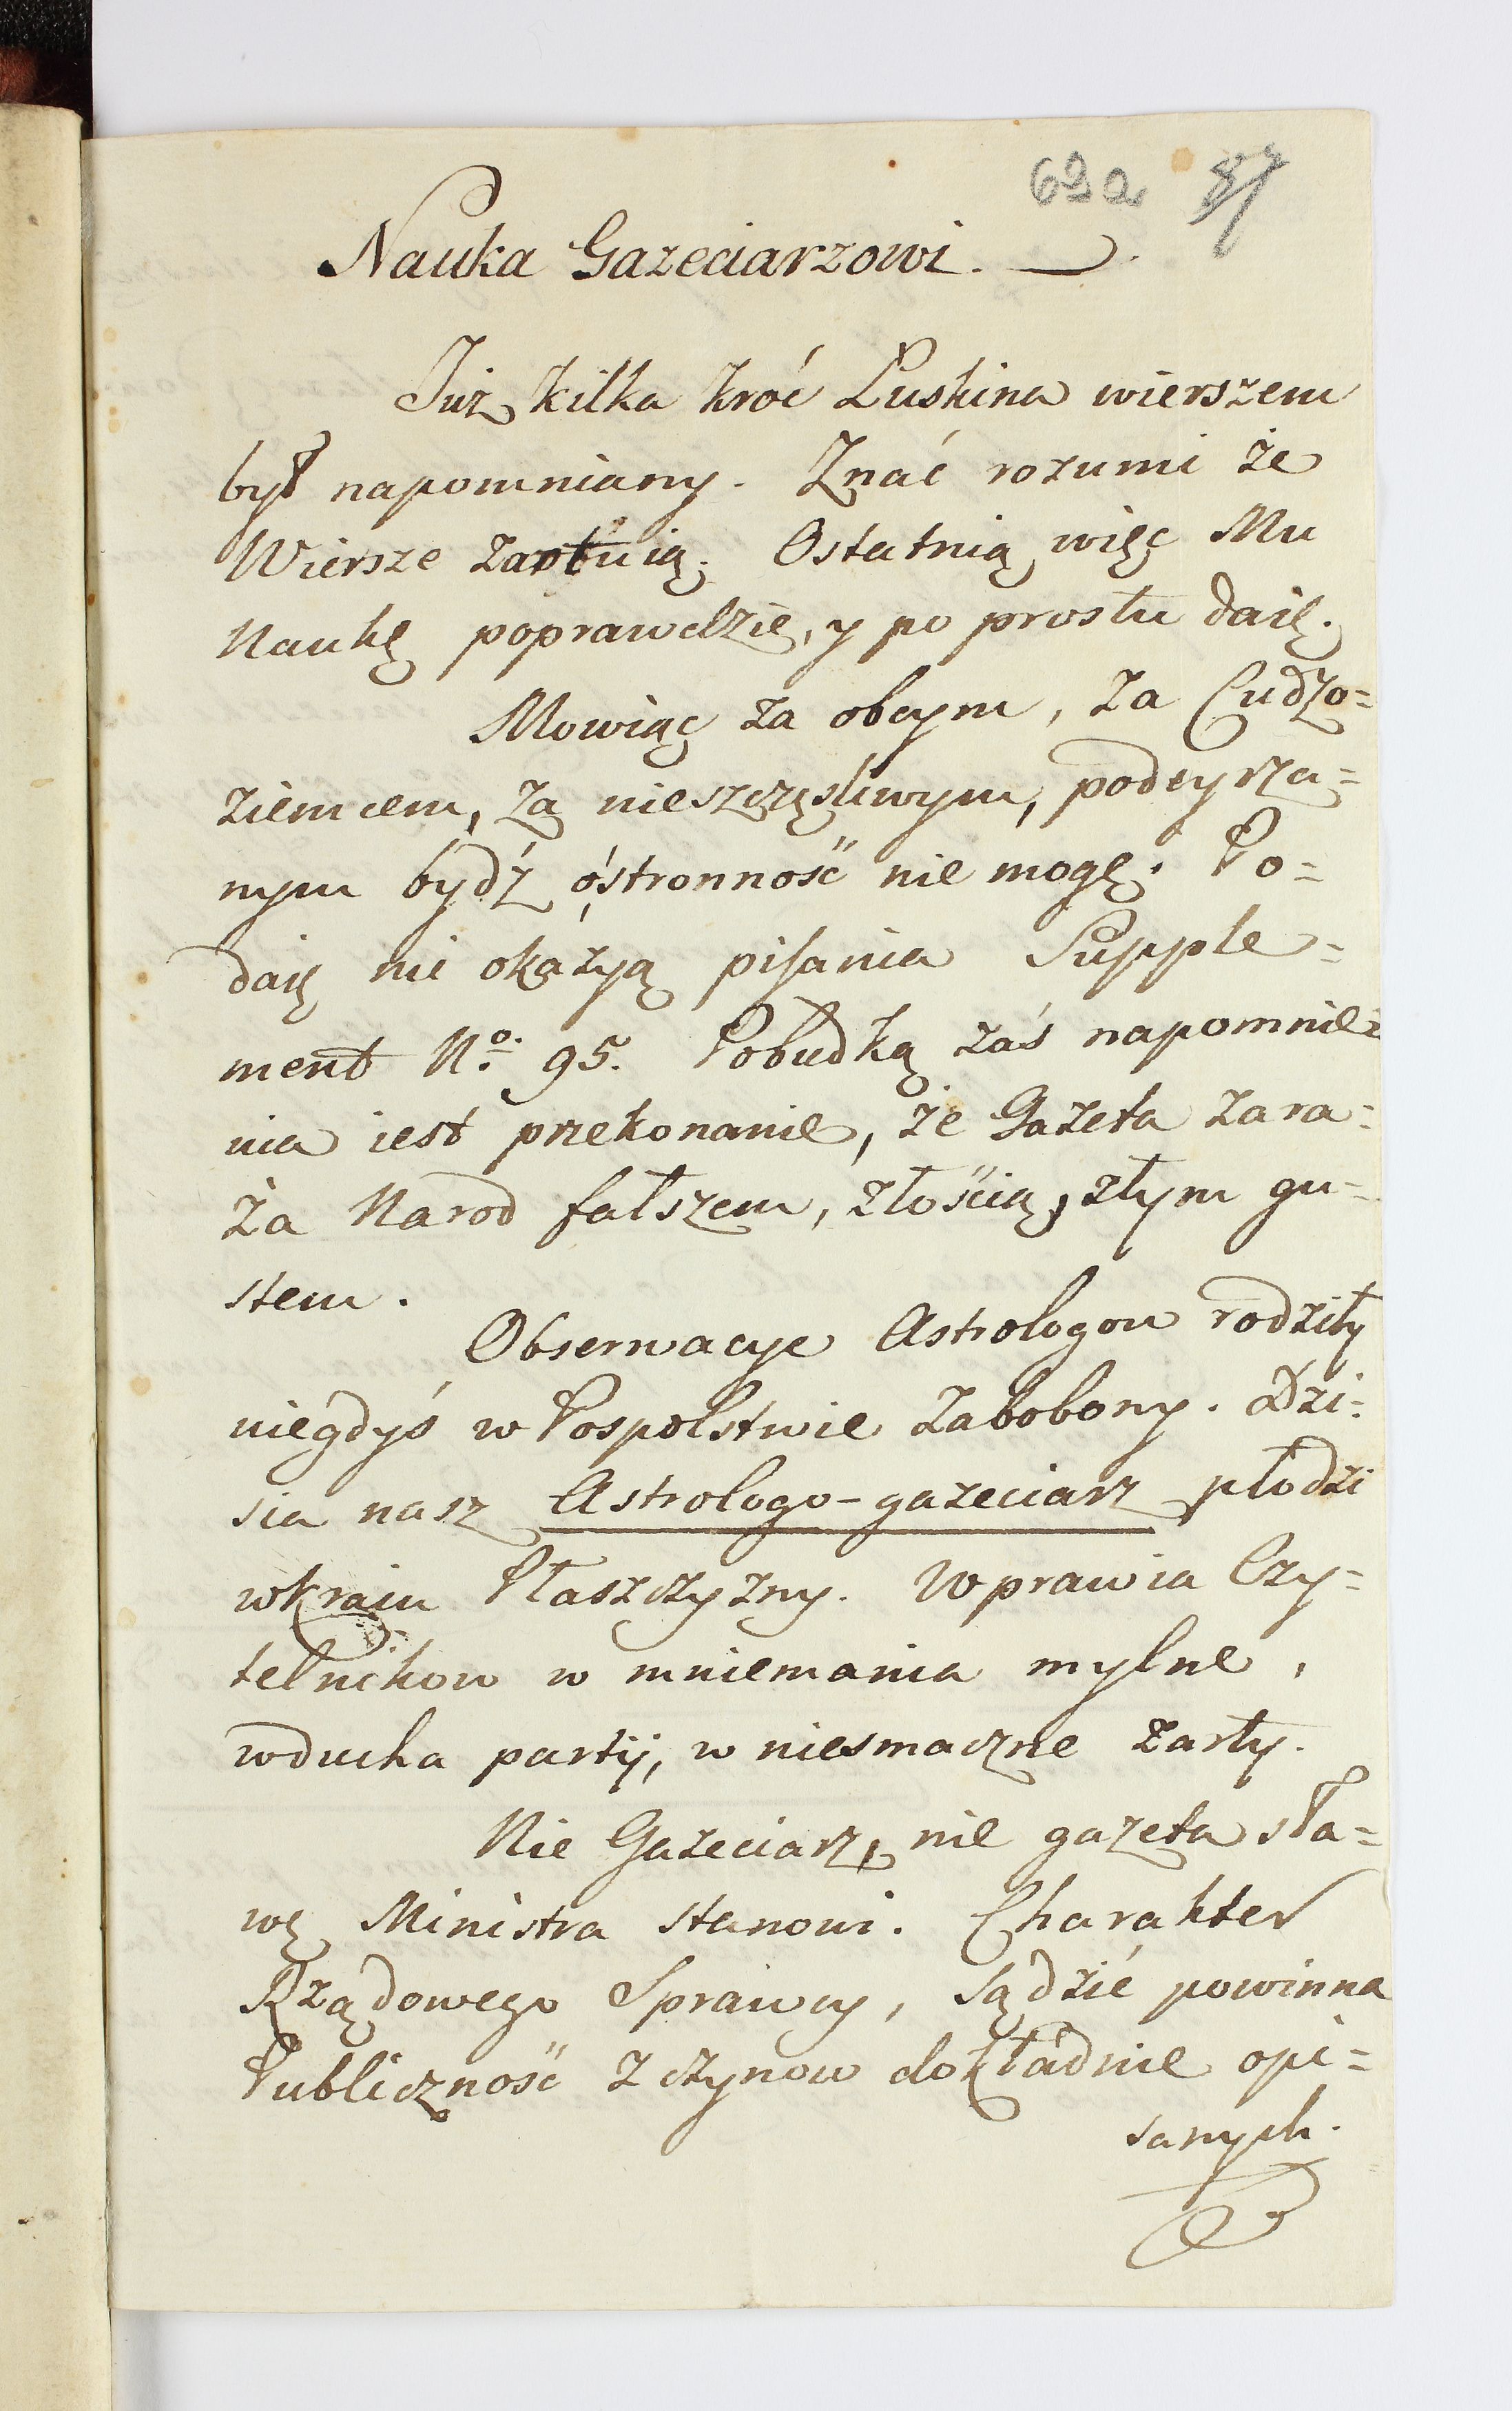 69a 87
Nauka Gazeciarzowi.
Juz kilka kroć Luskina wierszem
był napomniany. Znać rozumi że
Wiersze zartuią. Ostatnią więc Mu
Naukę poprawdzie, y po prostu daię.
Mowiąc za obcym, za Cudzo=
ziemcem, za nieszczęsliwym, podeyrza=
nym bydź o stronność nie mogę. Po=
daię mi okazyą pisania Supple=
ment No. 95. Pobudką zaś napomnie=
nia iest przekonanie, że Gazeta zara=
ża Narod fałszem, złością, złym gu=
stem.
Obserwacye Astrologow rodziły
niegdyś w Pospolstwie zabobony. dzi=
sia nasz Astrologo-gazeciarz płodzi
wkraiu Płaszczyzny. Wprawia Czy=
telnikow w mniemania mylne,
wducha partij, w niesmaczne zarty.
Nie Gazeciarz, nie gazeta sła=
wę Ministra stanowi. Charakter
Rządowego Sprawcy, sądzić powinna
Publiczność z czynow dokładnie opi=
sanych.